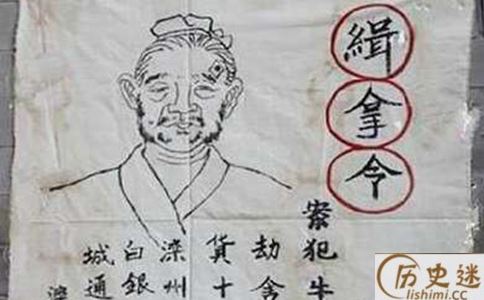 緝拿令
案犯牛
劫舍
貨十
滦州
白銀
城通
历史迷
lishimi.cc